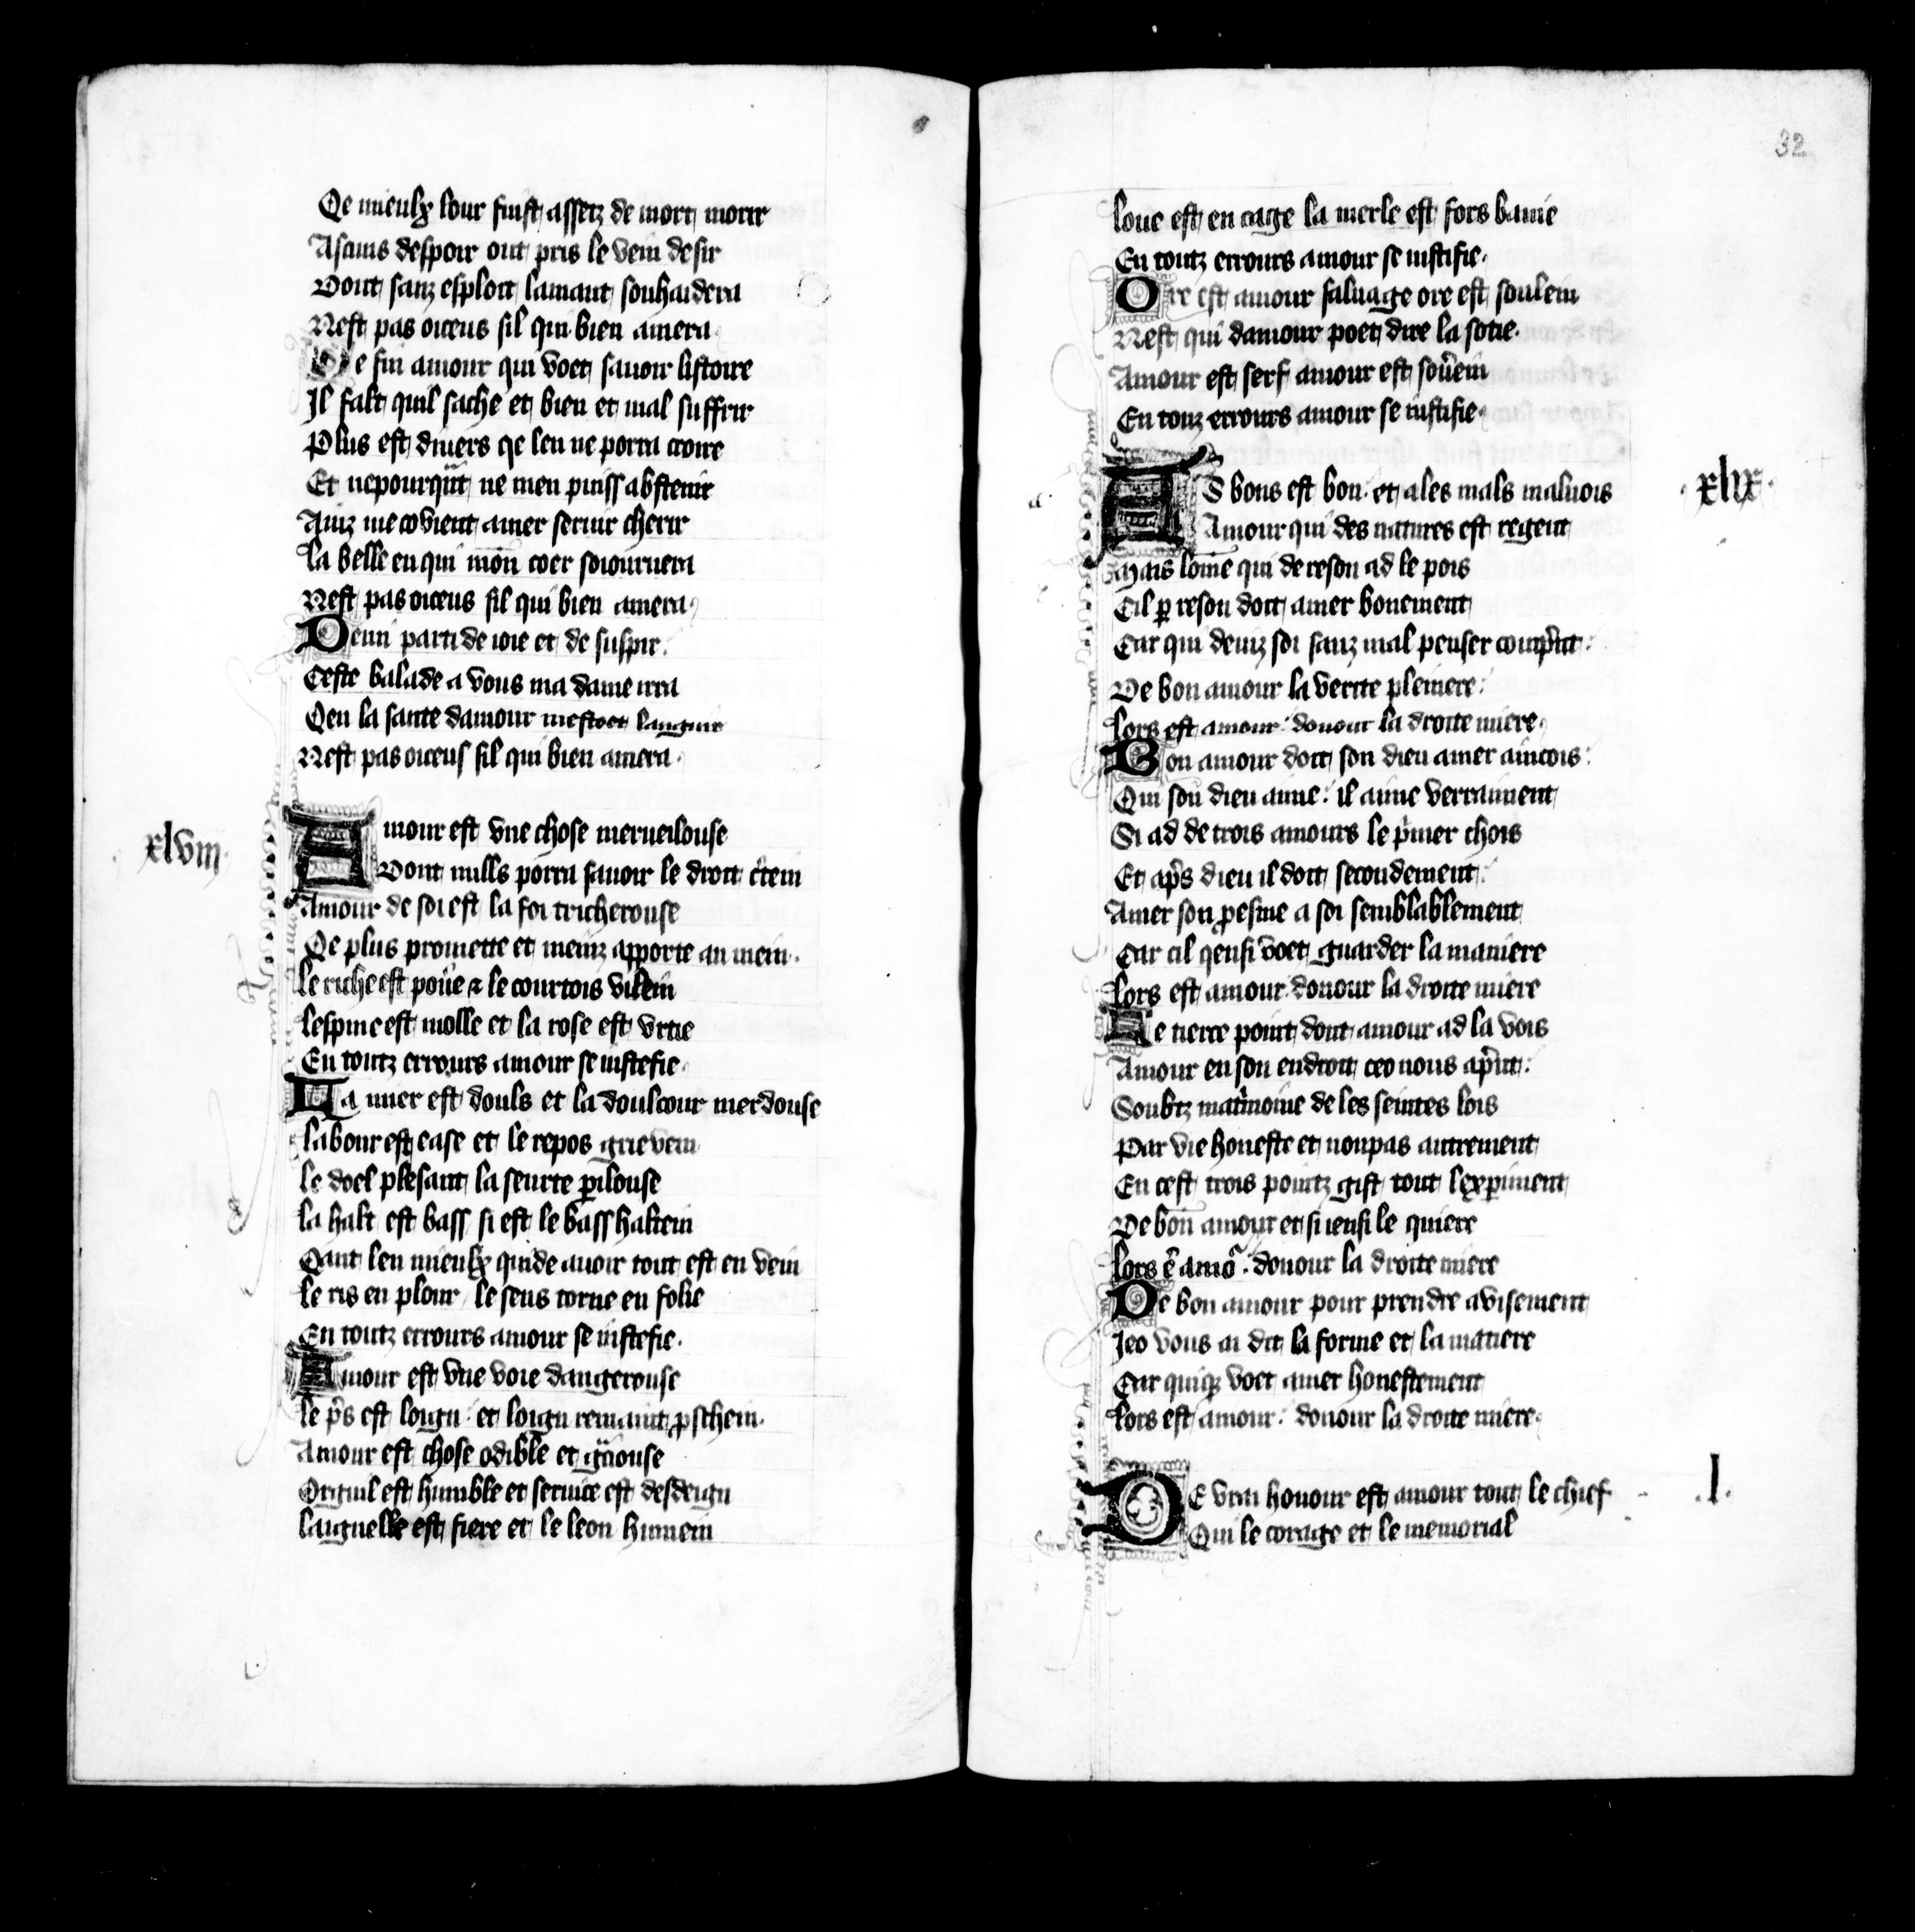 Qe mieulx lour fuist assetz de mort morir
Asanis despoir ont pris le vein desir
Dont sanz esploit lamant souhaidera
Nest pas oiceus sil qui bien amera
De fin amour qui voet savoir listoire
Il falt quil sache et bien et mal suffrir
Plus est divers qe len ne porra croire
Et nepourqant ne men puiss abstenir
Ainz me covient amer servir cherir
la belle en qui mon coer sojournera
Nest pas oiceus sil qui bien amera
Demi parti de joie et de suspir
Ceste balade a vous ma dame irra
Qen la sante damour mestoet languir
Nest pas oiceus sil qui bien amera
xlviii
Amour est une chose merveilouse
Dont nulls porra savoir le droit c̉tein
Amour de soi est la foi tricherouse
Qe plus promette et meinz apporte au mein
le riche est pov̉e ⁊ le courtois vilein
lespine est molle et la rose est urtie
En toutz errours amour se justefie
La mier est douls et la doulcour merdouse
labour est ease et le repos grievein
le doel plesant la seurte ꝑilouse
la halt est bass si est le bass haltein
Qant len mieulx quide avoir tout est en vein
le ris en plour le sens torne en folie
En toutz errours amour se justefie
Amour est une voie dangerouse
le p̉s est loign et loign remaint ꝓschein
Amour est chose odible et gͣciouse
Orguil est humble et service est desdeign
laignelle est fiere et le leon humein
32
loue est en cage la merle est fors banie
En toutz errours amour se justifie
Ore est amour salvage ore est soulein
Nest qui damour poet dire la sotie
Amour est serf amour est sov̉ein
En toutz errours amour se justifie
xlix
As bons est bon et a les mals malvois
Amour qui des natures est regent
Mais lome qui de reson ad le pois
Cil ꝑ reson doit amer bonement
Car qui deinz soi sanz mal penser comp̉nt
De bon amour la verite pleinere
lors est amour donour la droite miere
Bon amour doit son dieu amer aincois
Qui son dieu aime il aime verraiment
Si ad de trois amours le p̉mer chois
Et ap̉s dieu il doit secondement
Amer son ꝓesme a soi semblablement
Car cil qensi voet guarder la maniere
lors est amour donour la droite miere
Le tierce point dont amour ad la vois
Amour en son endroit ceo nous ap̉nt
Soubtz matͥmoine de les seintes lois
Par vie honeste et nonpas autrement
En cest trois pointz gist tout lexꝑiment
De bon amour et si jensi le quiere
lors ē amoͬ donour la droite miere
De bon amour pour prendre avisement
Jeo vous ai dit la forme et la matiere
Car quiqꝫ voet amer honestement
lors est amour donour la droite miere
l
De vrai honour est amour tout le chief
Qui le corage et le memorial